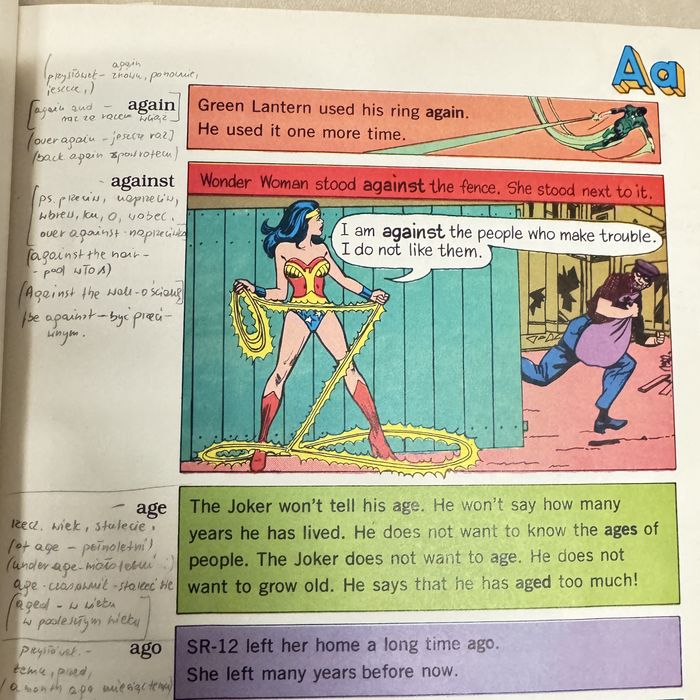 Aa
again
przysłówek - znowu, ponownie,
jeszcze,)
again
[again and -
over again - jeszcze raz]
back again z powrotem)
Green Lantern used his ring again.
He used it one more time.
against
ps. przeciw, naprzeciw,
wbrew, ku, o, wobec.
over against - naprzeciwko
[against the hair -
- pod włos)
[Against the wall - o ścianę]
be against - być przeci-
wnym.
Wonder Woman stood against the fence. She stood next to it.
I am against the people who make trouble.
I do not like them.
age
rzecz. wiek, stulecie,
(of age - pełnoletni)
(under age - małoletni)
age - czasownik - starzeć się
[aged - w wieku
w podeszłym wieku
The Joker won't tell his age. He won't say how many
years he has lived. He does not want to know the ages of
people. The Joker does not want to age. He does not
want to grow old. He says that he has aged too much!
ago
przysłówek. -
temu, przed,
(a month ago miesiąc temu)
SR-12 left her home a long time ago.
She left many years before now.